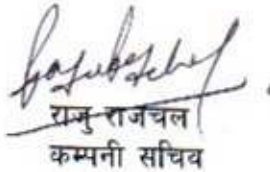 राजु राजचल
कम्पनी सचिव